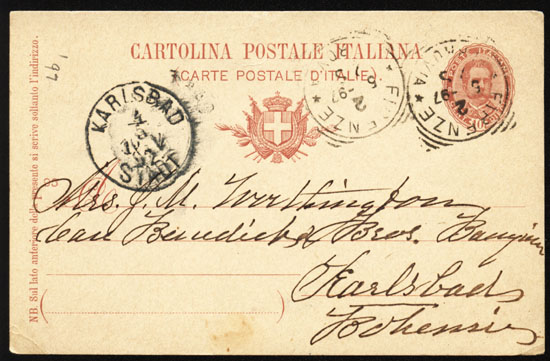 CARTOLINA POSTALE ITALIANA
CARTE POSTALE D'ITALIE
NB. Sul lato anteriore della presente si scrive soltanto l'indirizzo.
197
KARLSBAD
STADT
FIRENZE
FERROVIA
FIRENZE
97
Mrs. J. M. Worthington
Care Benedict Bros.
Karlsbad
Bohemia